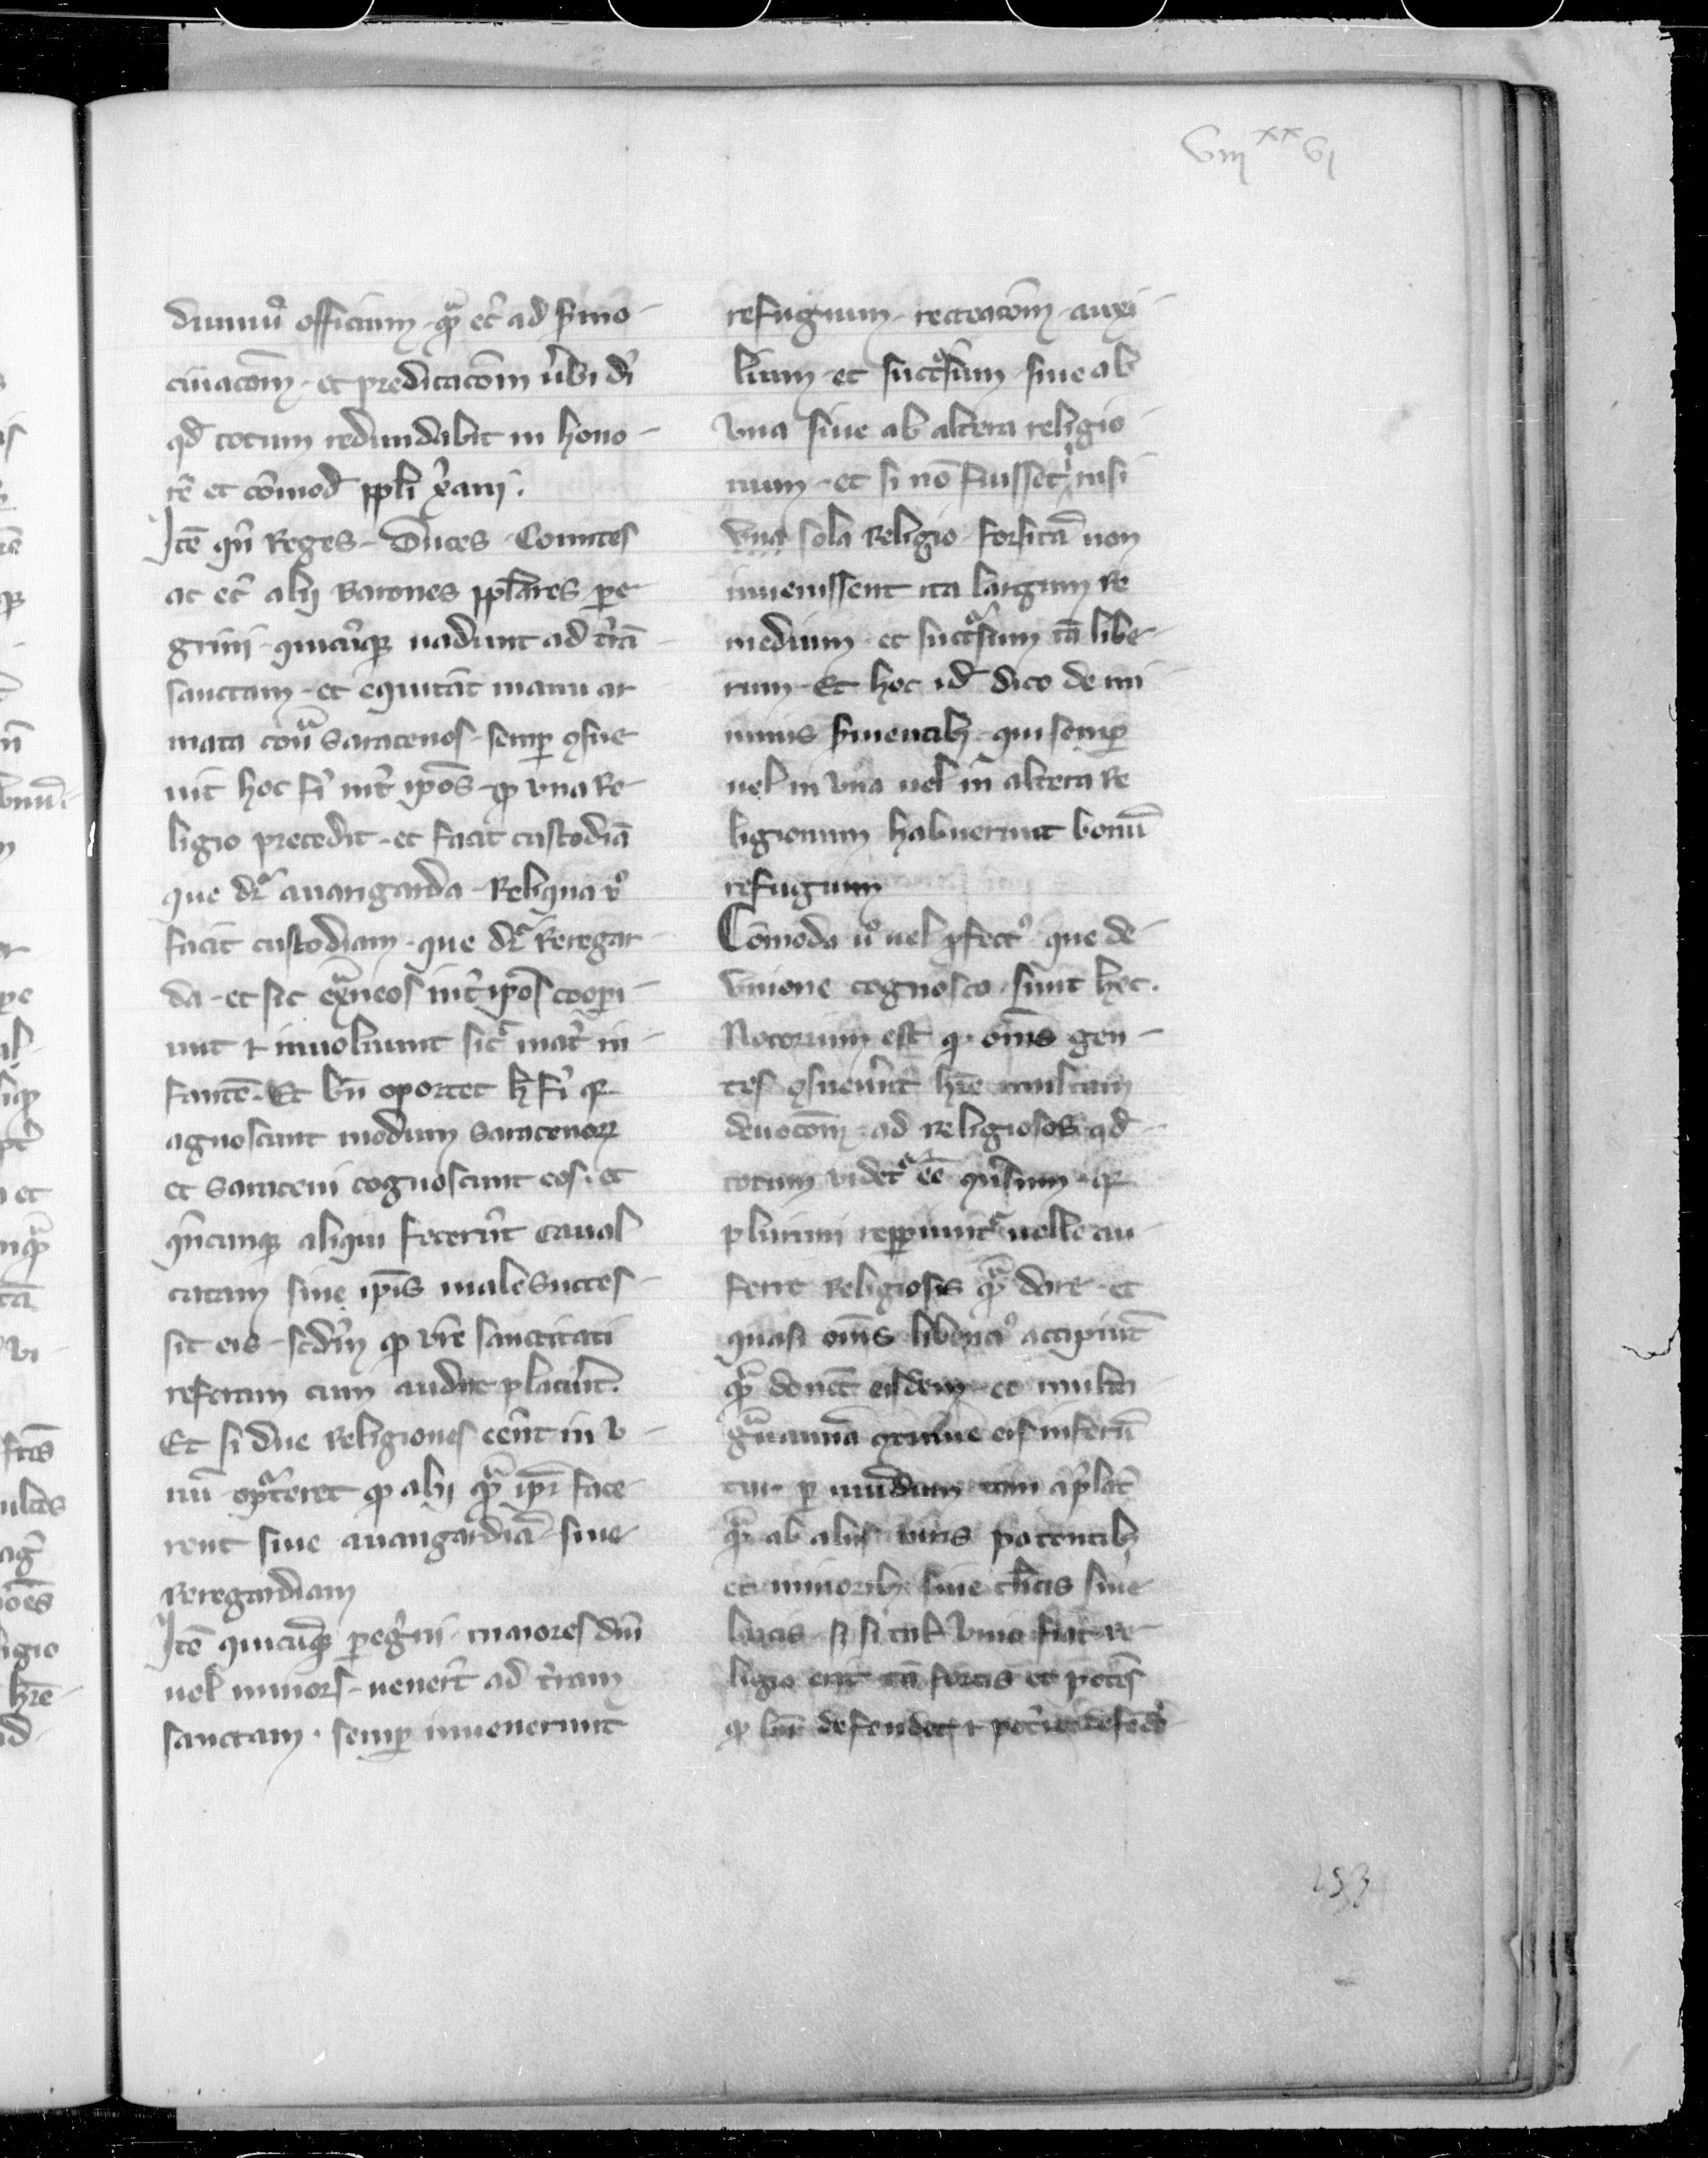 Vııjxx Vj
diuinũ officium quã etĩ ad sermo
cinacõm et predicacõm ũbi dĩ
qđ totum redundabit in hono
rẽ et cõmod ppli xani.
Itẽ qñ Reges Duces Comites
ac etĩ alij Barones pplares pe
grini quicũqꝫ uadunt ad tr̃ã
sanctam et equitãt manu ar
mata cont̃ Saracenos semꝑ ꝯsue
uit hoc fĩ int̃ ipõs ꝙ vna Re
ligio precedit et facit custodiã
que dr̃ auangarda Reliqua vº
facit custodiam que dr̃ Reregar
da et sic ext̃neos int̃ ipõs coopi
unt ⁊ inuoluunt sic̃ mat̃ in
fantẽ Et bñ oportet h̃ fĩ qꝛ
agnoscunt modum Saracenoꝝ
et Saraceni cognoscunt eos et
qñcunqꝫ aliqui fecerũt caual
catam sine ipĩs male succes
sit eis scdm̃ ꝙ vr̃e sanctitati
referam cum audire placuit.
Et si due Religiones eẽnt in v
nũ opt̃eret ꝙ alij quã ipĩ face
rent siue auangardiã siue
Reregardiam
Itẽ quicũqꝫ peg̃ni maiores dñi
uel minores uenerĩt ad tr̃am
sanctam semꝑ inuenerunt
refugium recreacõm auxi
lium et succ̃sum siue ab
vna siue ab altera religio
num et si nõ fuisset nisi
vna sola Religio forsitã non
inuenissent ita largum Re
medium et succ̃sum tã libe
rum Et hoc id dico de mi
nimis seruientibꝫ qui semꝑ
uel in vna uel in altera Re
ligionum habuerunt bonũ
refugium
Cõmoda ũº uel ꝓfectꝰ que de
vnione cognosco sunt hec.
Notorium est ꝙ oms̃ gen
tes ꝯsueuerũt hr̃e multam
deuocõm ad Religiosos qđ
totum videt̃ eẽ ꝯũsum qꝛ
plurimi reꝑiunt̃ uolle au
ferre Religiosis quã dare et
quasi oms̃ libenciꝰ accipiunt
quã donẽt eisdem et multa
gũamina ꝯtinue eis inferũ
tur ꝑ mundum tam a p̃latĩ
quã ab alijs viris potentibꝫ
et minoribꝫ siue cl̃icis siue
laicis sꝫ si tal̃ vnio fiat Re
ligio erit tã fortis et potẽs
ꝙ bñ defendet ⁊ pot̃it defẽdẽ
153